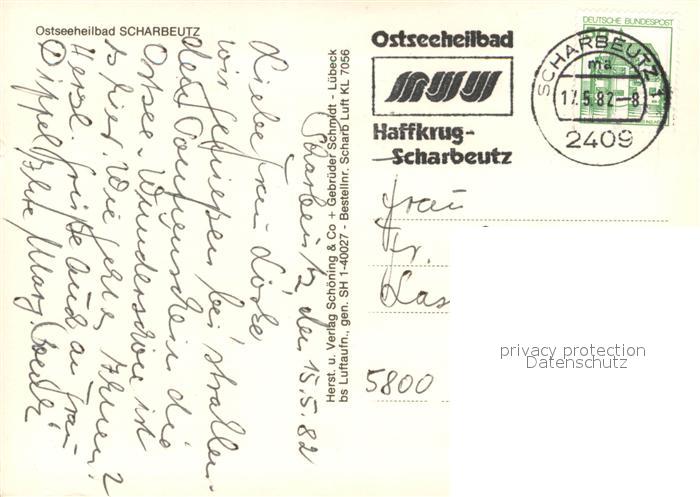 Ostseeheilbad SCHARBEUTZ
Scharbeutz, den 15.5.82
Liebe Frau Lotze
wir genießen bei strahlen-
dem Sonnenschein die
Ostsee. Wunderschön ist
es hier. Wie geht es Ihnen?
Herzl. Grüße auch an Frau
Dippel Ihre Marg.
Herst. u. Verlag Schöning & Co + Gebrüder Schmidt - Lübeck
bs Luftaufn., gen. SH 1-40027 - Bestellnr. Scharb Luft KL 7056
Ostseeheilbad
Haffkrug-
Scharbeutz
DEUTSCHE BUNDESPOST
SCHARBEUTZ 1
ma
17.5.82-8
2409
Frau
Fr.
Las
5800
privacy protection
Datenschutz